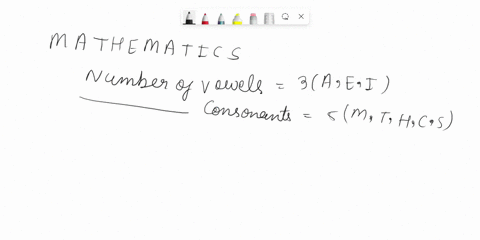 MATHEMATICS
Number of vowels = 3 (A, E, I)
Consonants = 5 (M, T, H, C, S)